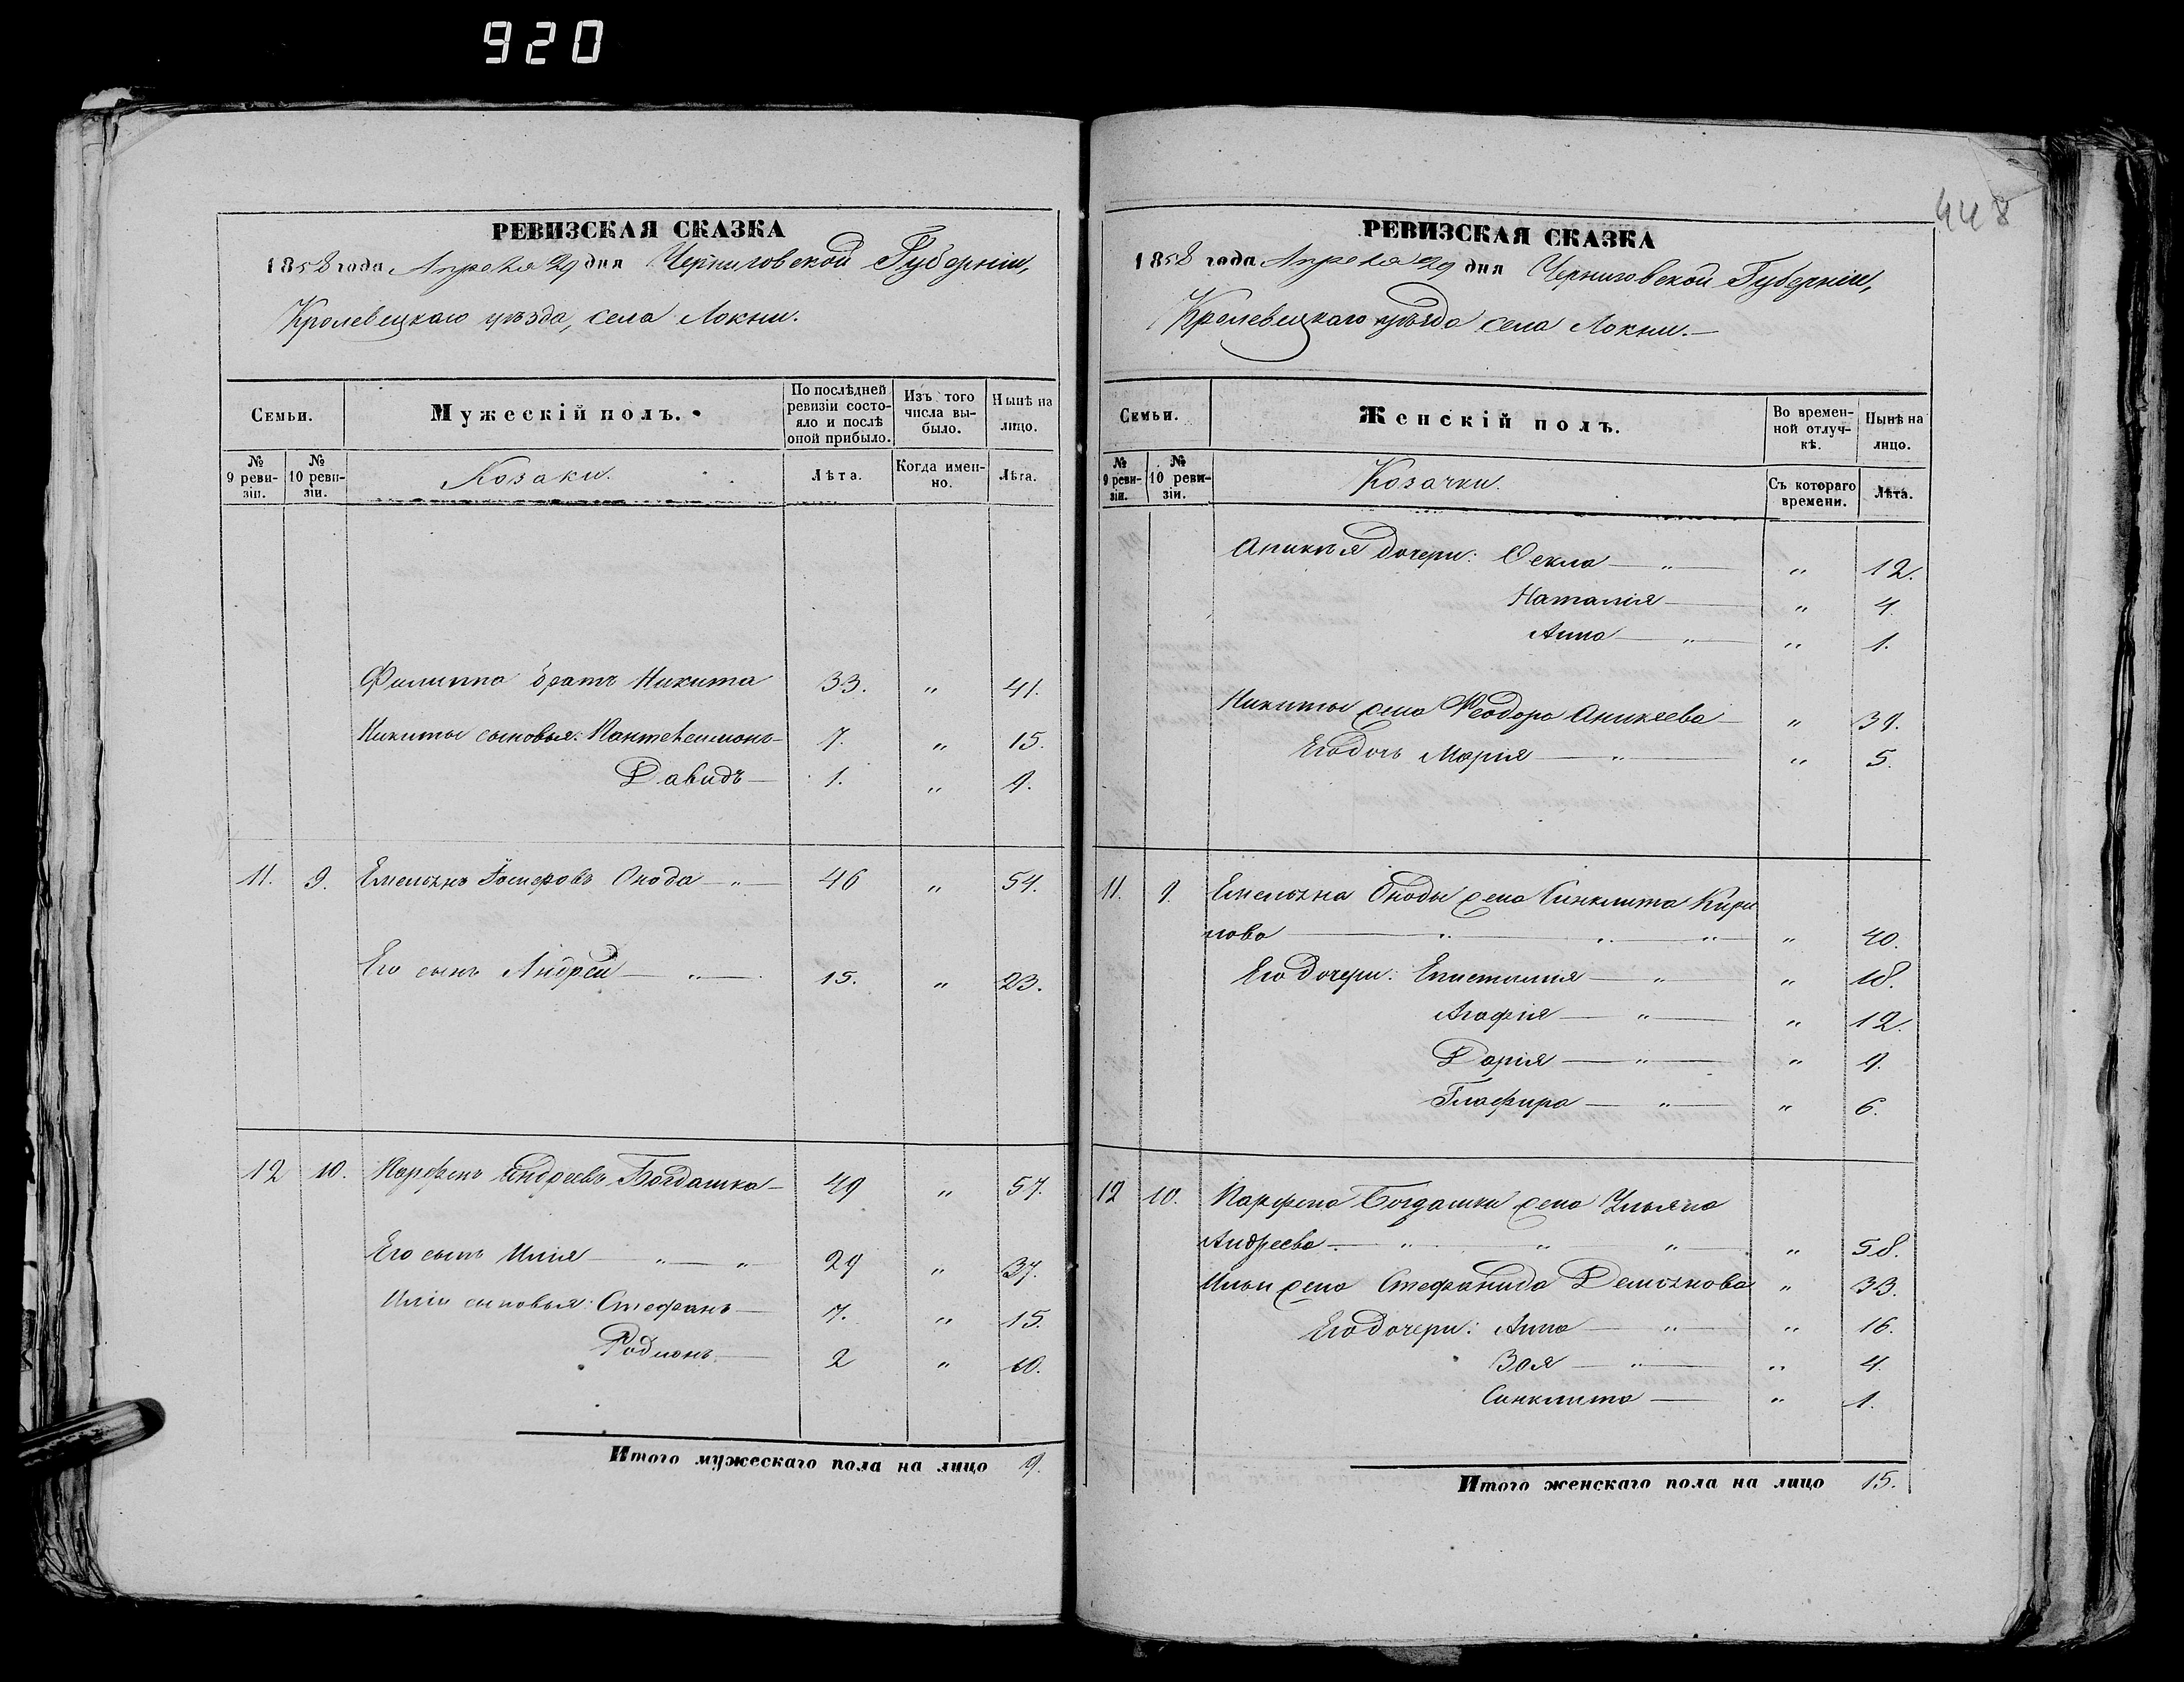 920
448
РЕВИЗСКАЯ СКАЗКА
1858 года Апреля 29 дня Черниговской Губерніи,
Кролевецкаго уѣзда, села Локни.
Семьи.
Мужескій полъ.
По послѣдней ревизіи состояло и послѣ оной прибыло.
Изъ того числа выбыло.
Нынѣ на лицо.
№ 9 ревизіи.
№ 10 ревизіи.
Козаки.
Лѣта.
Когда именно.
Лѣта.
Филиппа братъ Никита 33. " 41.
Никиты сыновья: Пантелеимонъ 7. " 15.
Давидъ 1. " 9.
11. 9. Емельянъ Осода " 46 " 54.
Его сынъ Андрей " 15. " 23.
12 10. Парфенъ Андреевъ Богдашка 49 " 57.
Его сынъ Илія " " 29 " 37.
Иліи сыновья: Стефанъ 7. " 15.
Родионъ 2 " 10.
Итого мужескаго пола на лицо 9.
РЕВИЗСКАЯ СКАЗКА
1858 года Апреля 29 дня Черниговской Губерніи,
Кролевецкаго уѣзда села Локни.
Семьи.
Женскій полъ.
Во временной отлучкѣ.
Нынѣ на лицо.
№ 9 ревизіи.
№ 10 ревизіи.
Козачки.
Съ котораго времени.
Лѣта.
дочери: Ѳекла " " 12.
Наталія " 4.
Анна " " 1.
Никиты жена Феодора Аникеева " 39.
Его дочь Марія " " 5.
11. 9. Емельяна Осоды жена Синклита Кири
лова " " " " 40.
Его дочери: Епистимия " " 18.
Агафія " " 12.
Дарія " " 9.
Глафира " " 6.
12 10. Парфена Богдашки жена Ульяна
Андреева " " " " 58.
Ильи жена Стефанида Демьянова " 33.
Его дочери: Анна " " 16.
Зоя " " 4.
Синклита " 1.
Итого женскаго пола на лицо 15.